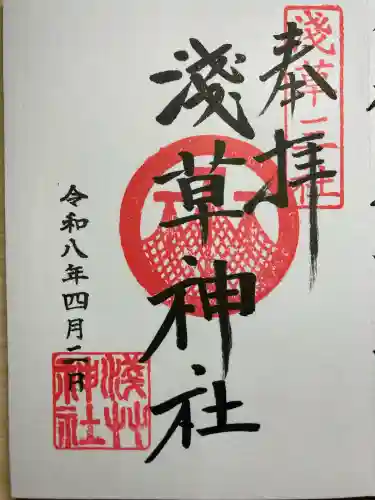 奉拝
淺草三社
淺草神社
令和八年四月二日
淺艸神社